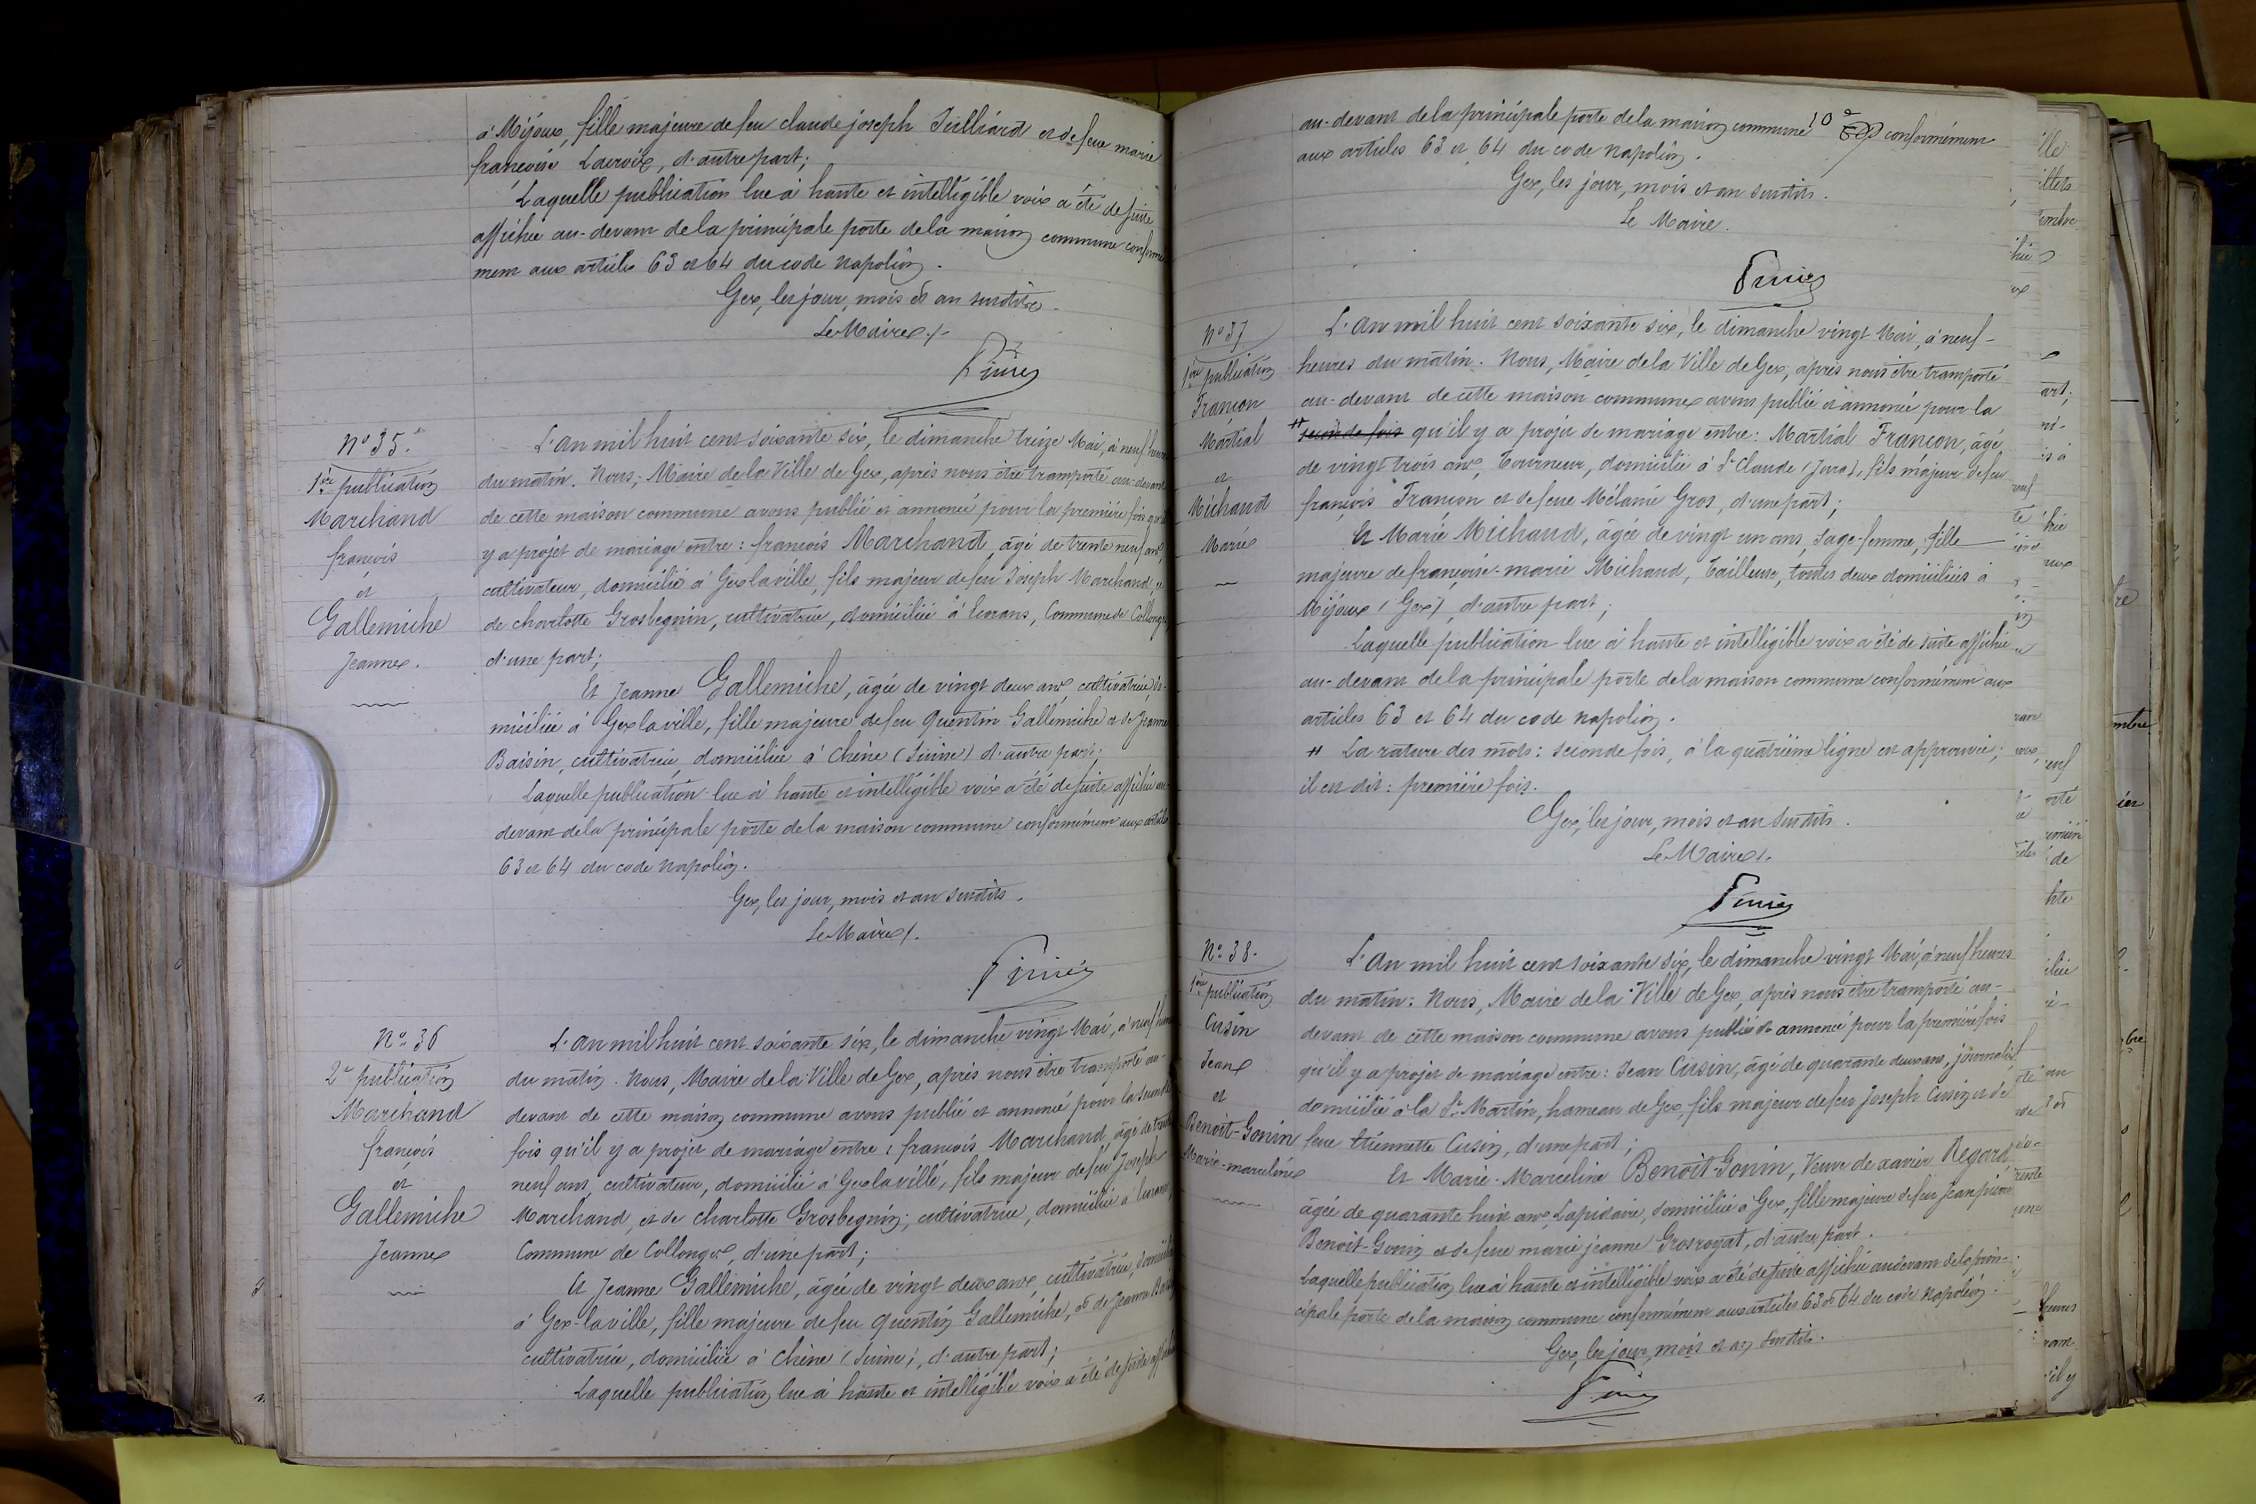 à Mijoux, fille majeure de feu claude joseph Julliard et de feue marie
françoise Lacroix, d'autre part;
Laquelle publication lue à haute et intelligible voix a été de suite
affichée au-devant de la principale porte de la maison commune conformé
ment aux articles 63 et 64 du code napoléon.
Gex, les jour, mois et an susdits.
Le Maire
N° 35.
1ère publication
Marchand
françois
et
Gallemiche
Jeanne.
L'an mil huit cent soixante six, le dimanche treize Mai, à neuf heures
du matin. Nous, Maire de la Ville de Gex, après nous être transporté au-devant
de cette maison commune avons publié et annoncé pour la première fois qu'il
y a projet de mariage entre: françois Marchand, âgé de trente neuf ans,
cultivateur, domicilié à Gex la ville, fils majeur de feu Joseph Marchand, et
de charlotte Grosbegnin, cultivatrice, domiciliée à Ecorans, Commune de Collonges
d'une part;
Et Jeanne Gallemiche, âgée de vingt deux ans, cultivatrice, do-
miciliée à Gex la ville, fille majeure de feu Quentin Gallemiche et de Jeanne
Baisin, cultivatrice, domiciliée à Chêne (Suisse) d'autre part;
Laquelle publication lue à haute et intelligible voix a été de suite affichée au-
devant de la principale porte de la maison commune conformément aux articles
63 et 64 du code napoléon.
Gex, les jour, mois et an susdits.
Le Maire
N° 36
2e publication
Marchand
françois
et
Gallemiche
Jeanne
L'an mil huit cent soixante six, le dimanche vingt Mai, à neuf heures
du matin. Nous, Maire de la Ville de Gex, après nous être transporté au-
devant de cette maison commune avons publié et annoncé pour la seconde
fois qu'il y a projet de mariage entre: françois Marchand, âgé de trente
neuf ans, cultivateur, domicilié à Gex la ville, fils majeur de feu Joseph
Marchand, et de charlotte Grosbegnin, cultivatrice, domiciliée à Ecorans
Commune de Collonges, d'une part;
Et Jeanne Gallemiche, âgée de vingt deux ans, cultivatrice, domiciliée
à Gex-la ville, fille majeure de feu Quentin Gallemiche, et de Jeanne Baisin
cultivatrice, domiciliée à Chêne (Suisse), d'autre part;
Laquelle publication lue à haute et intelligible voix a été de suite affichée
au-devant de la principale porte de la maison commune conformément
aux articles 63 et 64 du code napoléon.
Gex, les jour, mois et an susdits.
Le Maire.
N° 37
1ère publication
Françon
Martial
et
Michaud
Marie
L'an mil huit cent soixante six, le dimanche vingt Mai, à neuf-
heures du matin. Nous, Maire de la Ville de Gex, après nous être transporté
au-devant de cette maison commune avons publié et annoncé pour la
seconde fois qu'il y a projet de mariage entre: Martial Françon, âgé
de vingt trois ans, Tourneur, domicilié à St Claude (Jura), fils majeur de feu
françois Françon et de feue Mélanie Gros, d'une part;
Et Marie Michaud, âgée de vingt un ans, Sage-femme, fille
majeure de françoise-marie Michaud, Tailleuse, toutes deux domiciliées à
Mijoux (Gex), d'autre part;
Laquelle publication lue à haute et intelligible voix a été de suite affichée
au-devant de la principale porte de la maison commune conformément aux
articles 63 et 64 du code napoléon.
La rature des mots: seconde fois, à la quatrième ligne est approuvée;
il est dit: première fois.
Gex, les jour, mois et an susdits.
Le Maire
N° 38.
1ère publication
Cusin
Jean
et
Benoît-Gonin
Marie-marceline
L'an mil huit cent soixante six, le dimanche vingt Mai, à neuf heures
du matin: Nous, Maire de la Ville de Gex, après nous être transporté au-
devant de cette maison commune avons publié et annoncé pour la première fois
qu'il y a projet de mariage entre: Jean Cusin, âgé de quarante deux ans, journalier
domicilié à la St Martin, hameau de Gex, fils majeur de feu Joseph Cusin et de
feue Etiennette Cusin, d'une part;
Et Marie-Marceline Benoît-Gonin, Veuve de xavier Regard
âgée de quarante huit ans, Lapidaire, domiciliée à Gex, fille majeure de feu Jean pierre
Benoît-Gonin et de feue marie jeanne Grosroyat, d'autre part.
Laquelle publication lue à haute et intelligible voix a été de suite affichée au devant de la prin-
cipale porte de la maison commune conformément aux articles 63 et 64 du code napoléon.
Gex, les jour, mois et an susdits.